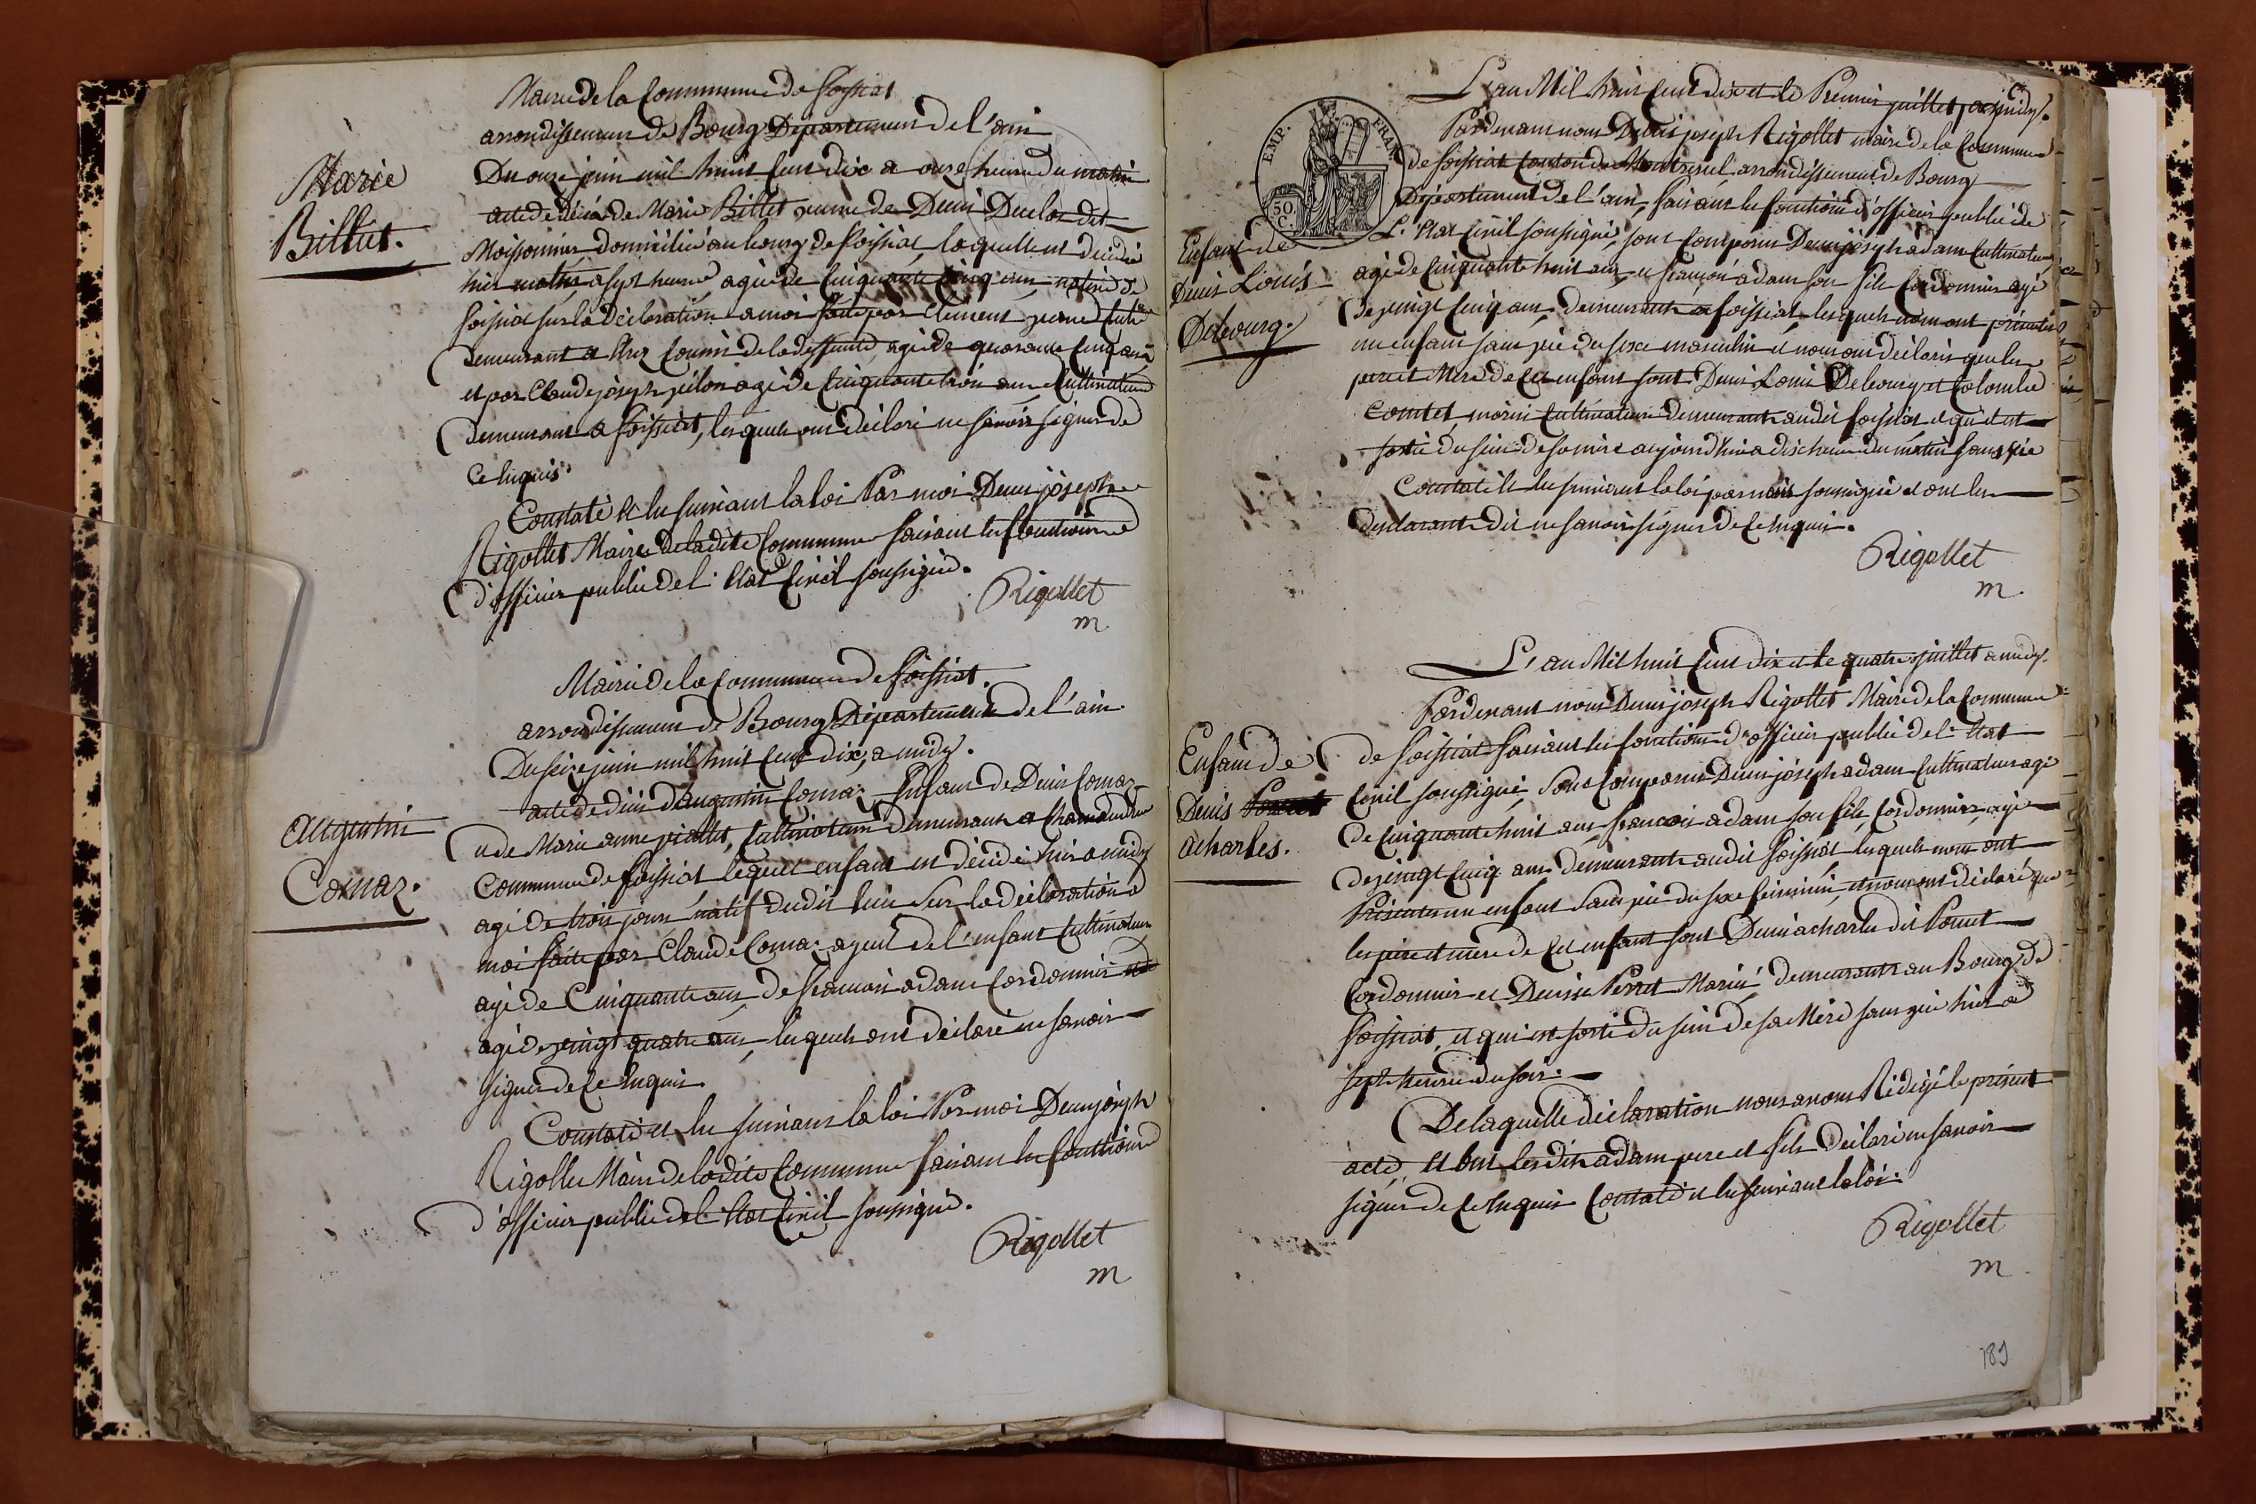 Mairie de la Commune de foissiat
arrondissement de Bourg Département de l'ain
Marie
Billiet.
Du onze juin mil huit cent dix a onze heures du matin
acte de décès de Marie Billet veuve de Denis Duclos dit
Moissonnier domiciliée au bourg de foissiat laquelle est décédée
hier matin a sept heures agée de cinquante cinq ans, native de
foissiat sur la déclaration a moi faite par Clement
demeurant a cousin de la deffunte, agé de quarante cinq ans
et par Claude joseph pélon agé de cinquante trois ans Cultivateur
demeurant a foissiat, lesquels ont déclaré ne savoir signer de
ce enquis.
Constaté et lu suivant la loi Par moi Denis joseph
Rigollet Maire de ladite Commune faisant les fonctions
d'officier public de l'état Civil soussigné.
Rigollet
m
Mairie de la Commune de foissiat.
arrondissement de Bourg Département de l'ain
Du seize juin mil huit cent dix, a midy.
Augustin
Comaz.
acte de décès d'augustin Comaz Enfant de Denis Comaz
et de Marie anne piollet, Cultivateurs demeurants a
Commune de foissiat lequel enfant est décédé hier a midy
agé de trois jours natif dudit lieu sur la déclaration a
moi faite par Claude Comaz ayeul de l'enfant Cultivateur
agé de Cinquante ans de francois adam Cordonnier
agé de vingt quatre ans, lesquels ont déclaré ne savoir
signer de ce enquis.
Constaté et lu suivant la loi Par moi Denis joseph
Rigollet Maire de ladite Commune faisant les fonctions
d'officier public de l'état Civil soussigné.
Rigollet
m
L'an Mil huit Cent dix et le Premier juillet a midy.
EMP. FRAN.
50.
C.
Pardevant nous Denis joseph Rigollet maire de la Commune
de foissiat Canton de Montrevel arrondissement de Bourg
Département de l'ain, faisant les fonctions d'officier public de
Enfant de
Denis Louis
Debourg.
L'état Civil soussigné, sont Comparus Denis joseph adam Cultivateur
agé de cinquante huit ans, et francois adam son fils Cordonnier agé
de vingt cinq ans, demeurants a foissiat, lesquels nous ont présenté
un enfant sans vie du sexe masculin et nous ont déclaré que les
pere et Mere de cet enfant sont Denis Louis Debourg et Colombe
Comtet, mariés Cultivateurs demeurants audit foissiat, et qu'il est
sorti du sein de sa mère aujourd'hui a dix heures du matin sans vie
Constaté et lu suivant la loi par nous soussigné et ont les
déclarants dit ne savoir signer de ce enquis.
Rigollet
m.
L'an Mil huit Cent dix et le quatre juillet a midy.
Pardevant nous Denis joseph Rigollet Maire de la Commune
Enfant de
Denis Perret
acharles.
de foissiat faisant les fonctions d'officier public de l'état
Civil soussigné, Sont Comparus Denis joseph adam Cultivateur agé
de cinquante huit ans, francois adam son fils, Cordonnier, agé
de vingt cinq ans demeurants audit foissiat lesquels nous ont
Présenté un enfant sans vie du sexe féminin, et nous ont déclaré que
les pere et mere de cet enfant sont Denis acharles dit Ponut
Cordonnier et Denise Perret Mariés demeurants au Bourg de
foissiat, et qui est sorti du sein de sa Mére sans vie hier a
sept heures du soir.
De laquelle déclaration nous avons Rédigé le présent
acte, et ont lesdits adam pere et fils déclaré ne savoir
signer de ce enquis Constaté et lu suivant la loi.
Rigollet
m.
189